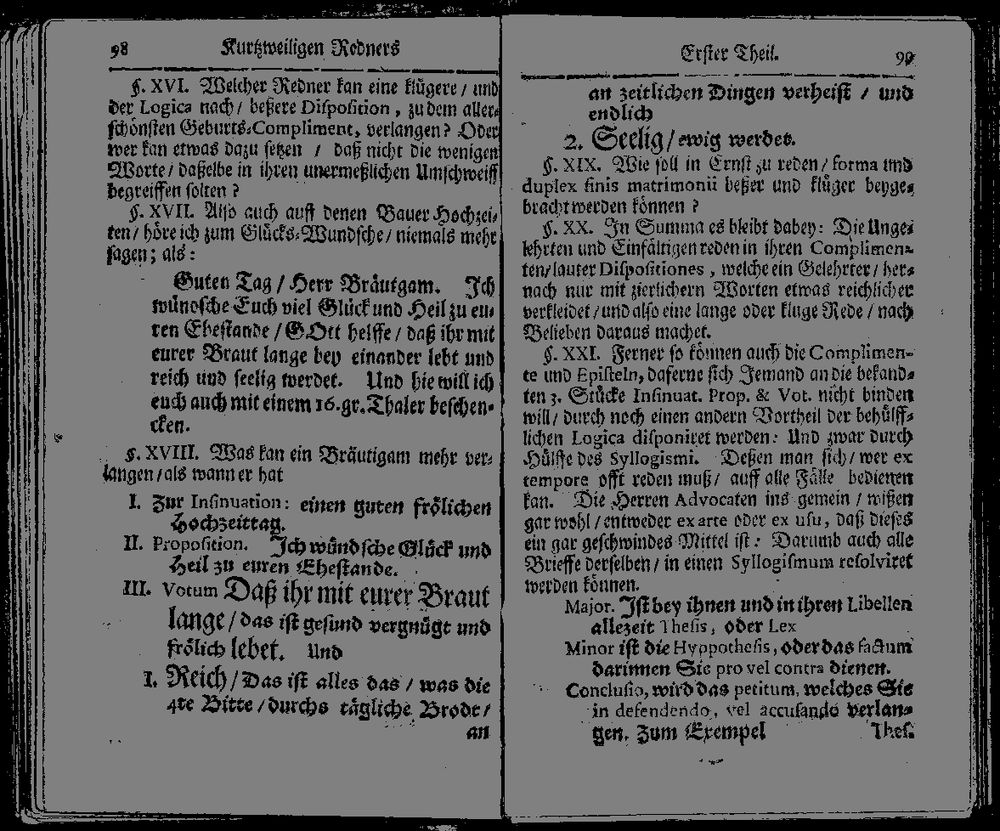 98 Kurtzweiligen Redners
§. XVI. Welcher Redner kan eine klügere / und
der Logica nach / beßere Disposition, zu dem aller-
schönsten Geburts-Compliment, verlangen? Oder
wer kan etwas dazu setzen / daß nicht die wenigen
Worte / daßelbe in ihren unermeßlichen Umschweiff
begreiffen solten?
§. XVII. Also auch auff denen Bauer Hochzei-
ten / höre ich zum Glücks-Wundsche / niemals mehr
sagen; als:
Guten Tag / Herr Bräutgam. Ich
wündsche Euch viel Glück und Heil zu eu-
ren Ehestande / GOtt helffe / daß ihr mit
eurer Braut lange bey einander lebt und
reich und seelig werdet. Und hie will ich
euch auch mit einem 16. gr. Thaler beschen-
cken.
§. XVIII. Was kan ein Bräutigam mehr ver-
langen / als wann er hat
I. Zur Insinuation: einen guten frölichen
Hochzeittag.
II. Proposition. Ich wündsche Glück und
Heil zu euren Ehestande.
III. Votum Daß ihr mit eurer Braut
lange / das ist gesund vergnügt und
frölich lebet. Und
1. Reich / Das ist alles das / was die
4te Bitte / durchs tägliche Brodt /
an
Erster Theil. 99
an zeitlichen Dingen verheist / und
endlich
2. Seelig / ewig werdet.
§. XIX. Wie soll in Ernst zu reden / forma und
duplex finis matrimonii beßer und klüger beyge-
bracht werden können?
§. XX. In Summa es bleibt dabey: Die Unge-
lehrten und Einfältigen reden in ihren Complimen-
ten / lauter Dispositiones, welche ein Gelehrter / her-
nach nur mit zierlichern Worten etwas reichlicher
verkleidet / und also eine lange oder kluge Rede / nach
Belieben daraus machet.
§. XXI. Ferner so können auch die Complimen-
te und Episteln, daferne sich Jemand an die bekand-
ten 3. Stücke Insinuat. Prop. & Vot. nicht binden
will / durch noch einen andern Vortheil der behülff-
lichen Logica disponiret werden: Und zwar durch
Hülffe des Syllogismi. Deßen man sich / wer ex
tempore offt reden muß / auff alle Fälle bedienen
kan. Die Herren Advocaten ins gemein / wißen
gar wohl / entweder ex arte oder ex usu, daß dieses
ein gar geschwindes Mittel ist: Darumb auch alle
Brieffe derselben / in einen Syllogismum resolviret
werden können.
Major. Ist bey ihnen und in ihren Libellen
allezeit Thesis, oder Lex
Minor ist die Hyppothesis, oder das factum
darinnen Sie pro vel contra dienen.
Conclusio, wird das petitum, welches Sie
in defendendo, vel accusando verlan-
gen. Zum Exempel
Thes.